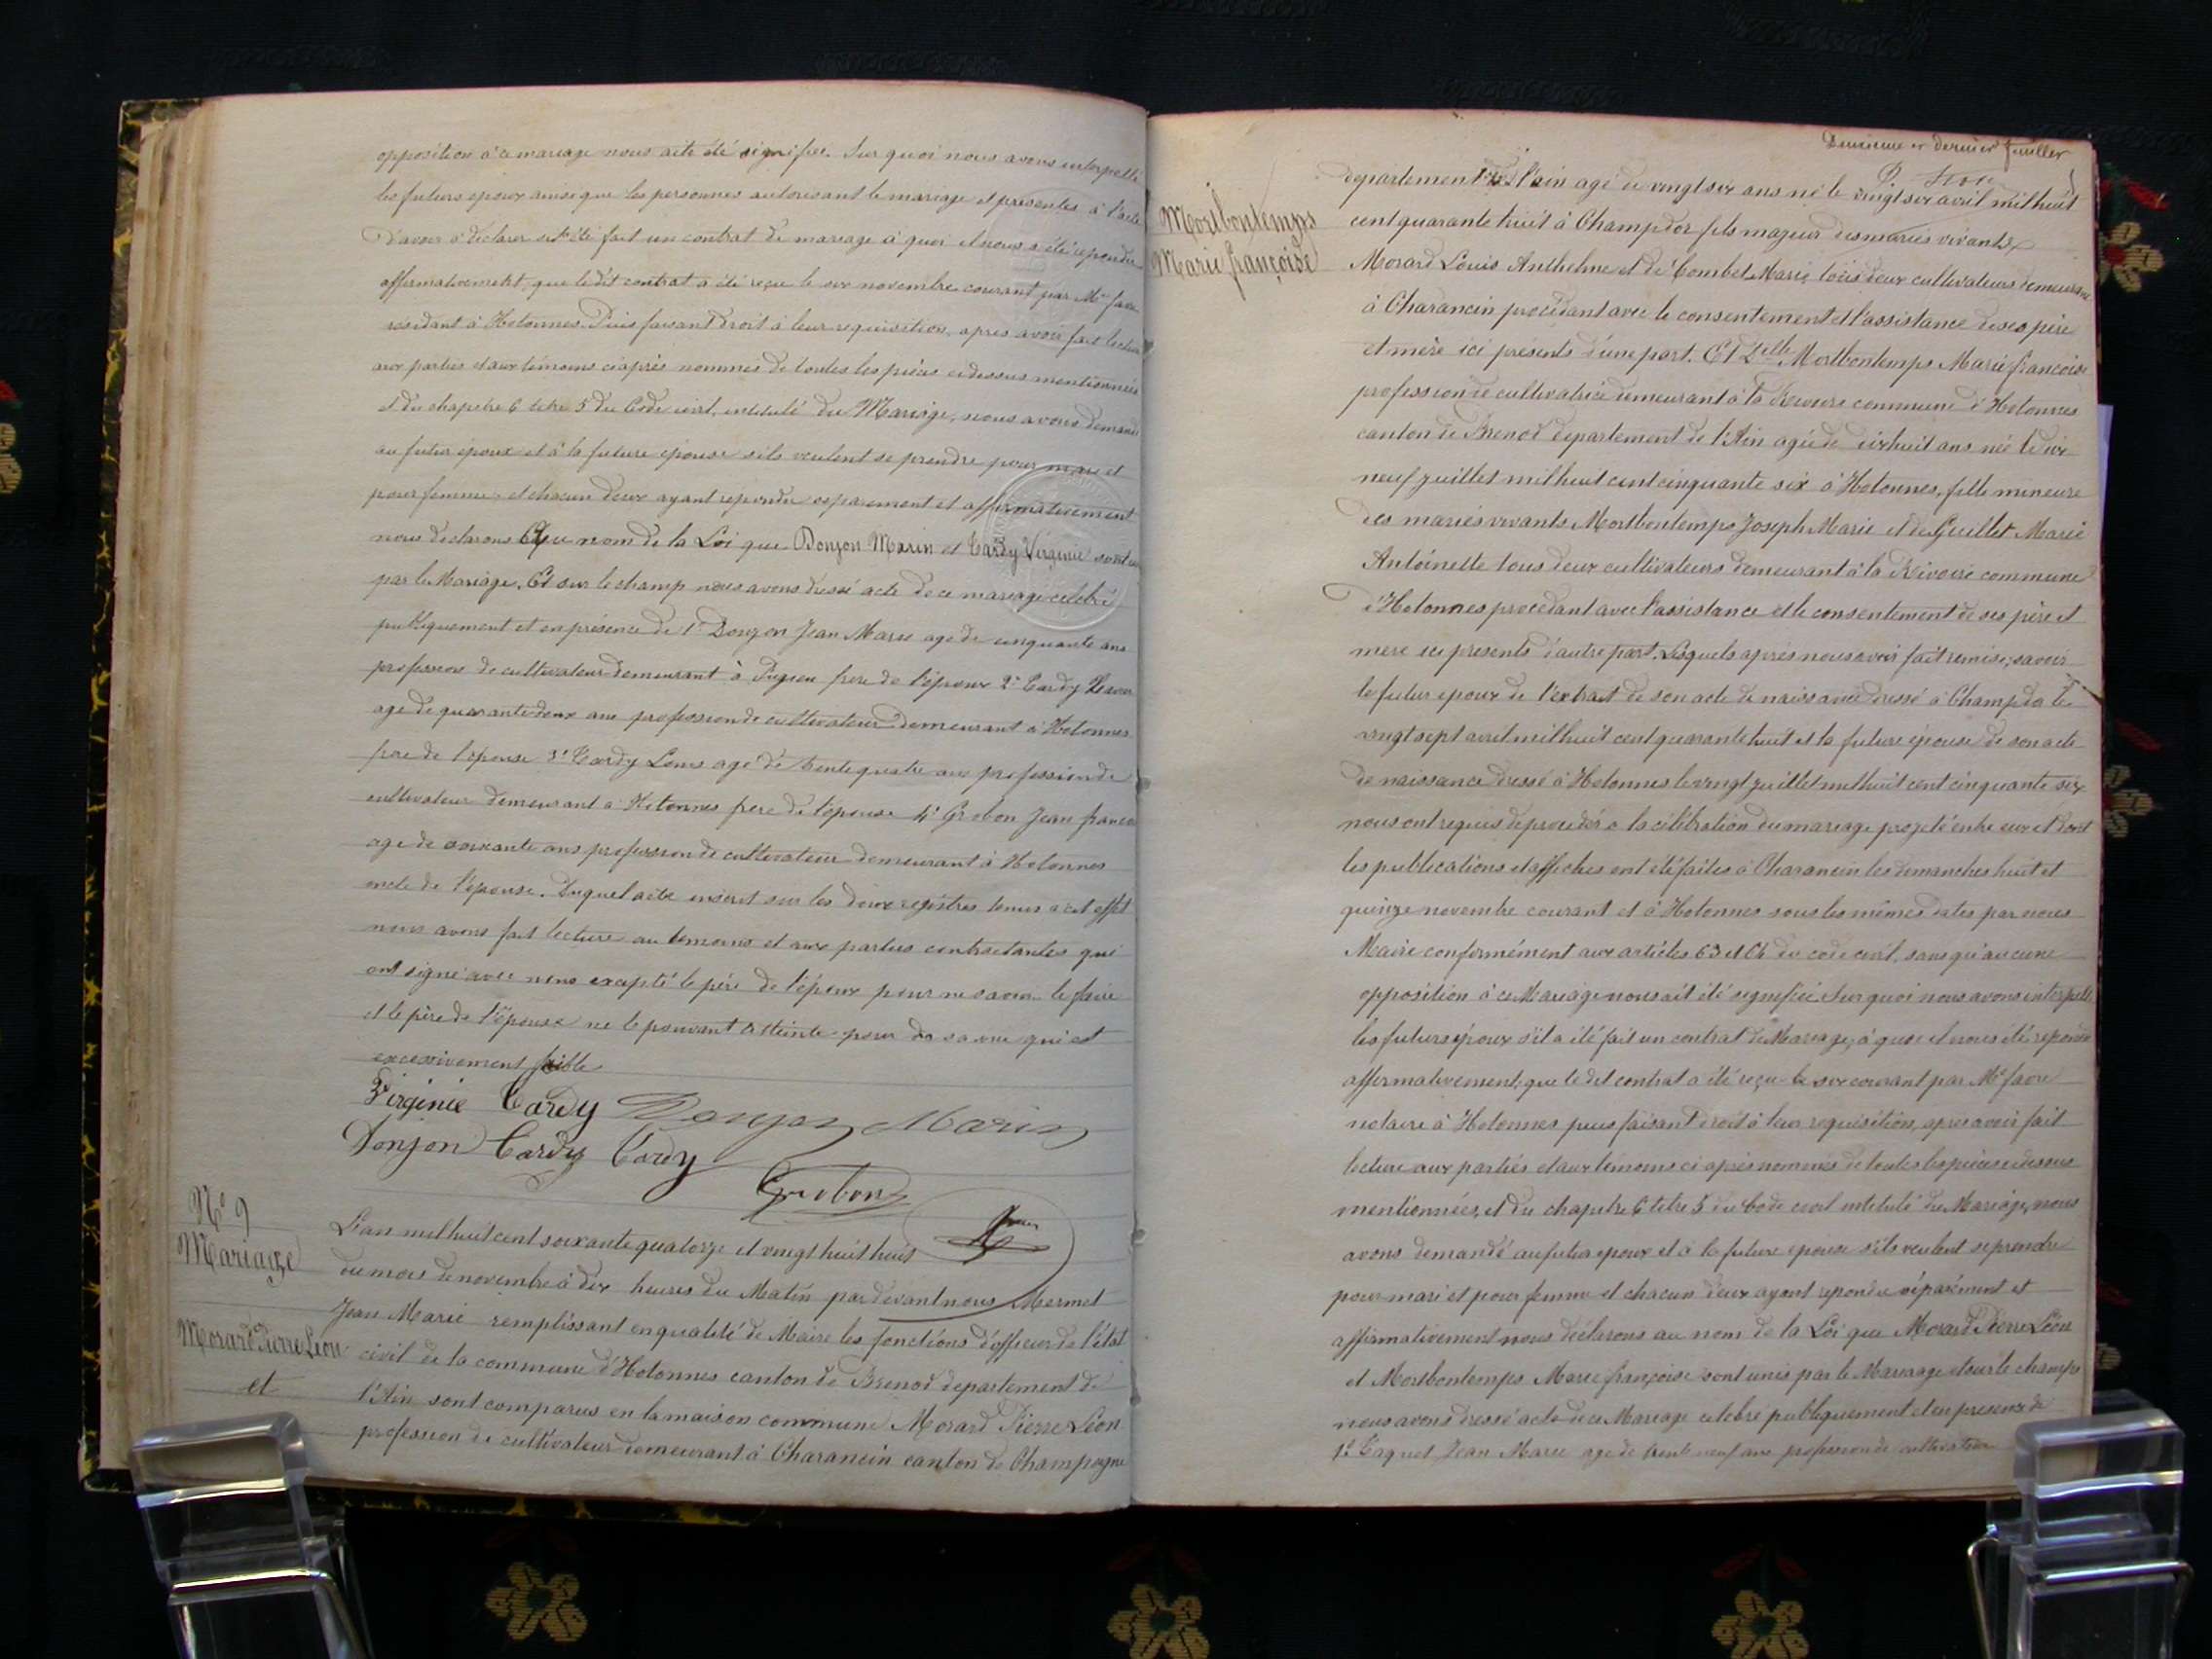 opposition à ce mariage nous aite été signifiée. Sur quoi nous avons interpellé
les futurs epoux ainsi que les personnes autorisant le mariage et presentes à l'acte
d'avoir à déclarer s'il été fait un contrat de mariage à quoi il nous a été répondu
affirmativement, que le dit contrat a été reçu le six novembre courant par Me favre
résidant à Hotonnes. Puis faisant droit à leur requisition, apres avoir fait lecture
aux parties et aux témoins ci après nommés de toutes les pièces ci dessus mentionnées
et du chapitre 6 titre 5 du Code civil, intitulé du Mariage, nous avons demandé
au futur époux et à la future épouse s'ils veulent se prendre pour mari et
pour femme, et chacun deux ayant repondu separement et affirmativement
nous declarons Au nom de la Loi que Donjon Marin et Tardy Virginie sont unis
par le Mariage. Et sur le champ nous avons dressé acte de ce mariage célébré
publiquement et en présence de 1° Donjon Jean Marie age de cinquante ans
profession de cultivateur demeurant à Pugieu frere de l'époux 2° Tardy
age de quarante deux ans profession de cultivateur demeurant à Hotonnes
frere de l'épouse 3° Tardy Louis agé de trente quatre ans profession de
cultivateur demeurant à Hotonnes frere de l'épouse 4° Grobon Jean francois
age de soixante ans profession de cultivateur demeurant à Hotonnes
oncle de l'épouse. Duquel acte inscrit sur les deux registres tenus a cet effet
nous avons fait lecture au temoins et aux parties contractantes qui
ont signé avec nous excepté le père de l'époux pour ne savoir le faire
et le père de l'épouse ne le pouvant atteinte pour do sa vue qui est
excessivement faible
Virginie Tardy Donjon Marin
Donjon Tardy Tardy
Grobon
N° 9
Mariage
Morard Pierre Léon
et
L'an mil huit cent soixante quatorze et vingt huit huit
du mois de novembre à dix heures du Matin par devant nous Mermet
Jean Marie remplissant en qualité de Maire les fonctions d'officier de l'état
civil de la commune d'Hotonnes canton de Brenod departement de
l'Ain sont comparus en la maison commune Morard Pierre Léon
profession de cultivateur demeurant à Charancin canton de Champagne
Deuxieme et dernier feuillet
Mortbontemps
Marie françoise
departement de l'ain agé de vingt six ans né le vingt six avril mil huit
cent quarante huit à Champdor fils majeur des mariés vivants
Morard Louis Anthelme et de Combet Marie tous deux cultivateurs demeurant
à Charancin procédant avec le consentement et l'assistance de ses père
et mère ici présents d'une part. Et Delle Mortbontemps Marie françoise
profession de cultivatrice demeurant à la Rivoire commune d'Hotonnes
canton de Brenod departement de l'Ain agée de dix huit ans née le dix
neuf juillet mil huit cent cinquante six à Hotonnes, fille mineure
des mariés vivants Mortbontemps Joseph Marie et de Guillet Marie
Antoinette tous deux cultivateurs demeurant à la Rivoire commune
d'Hotonnes procédant avec l'assistance et le consentement de ses père et
mere ici présents d'autre part. Lesquels après nous avoir fait remise, savoir
le futur époux de l'extrait de son acte de naissance dressé à Champdor le
vingt sept avril mil huit cent quarante huit et la future épouse de son acte
de naissance dressé à Hotonnes le vingt juillet mil huit cent cinquante six
nous ont requis de procéder à la célébration du mariage projeté entre eux et dont
les publications et affiches ont été faites à Charancin les dimanches huit et
quinze novembre courant et à Hotonnes sous les mêmes dates par nous
Maire conformément aux articles 63 et 64 du code civil, sans qu'aucune
opposition à ce Mariage nous ait été signifiée. Sur quoi nous avons interpellé
les futurs époux s'il a été fait un contrat de Mariage, à quoi il nous été répondu
affirmativement, que le dit contrat a été reçu le six courant par Me favre
notaire à Hotonnes puis faisant droit à leur requisition, apres avoir fait
lecture aux parties et aux témoins ci après nommés de toutes les pièces ci dessus
mentionnées, et du chapitre 6 titre 5 du Code civil intitulé du Mariage, nous
avons demandé au futur epoux et à la future épouse s'ils veulent se prendre
pour mari et pour femme et chacun d'eux ayant repondu séparément et
affirmativement nous déclarons au nom de la Loi que Morard Pierre Léon
et Mortbontemps Marie françoise sont unis par le Mariage et sur le champ
nous avons dressé acte de ce Mariage célébré publiquement et en presence de
1° Taquet Jean Marie age de trente neuf ans profession de cultivateur